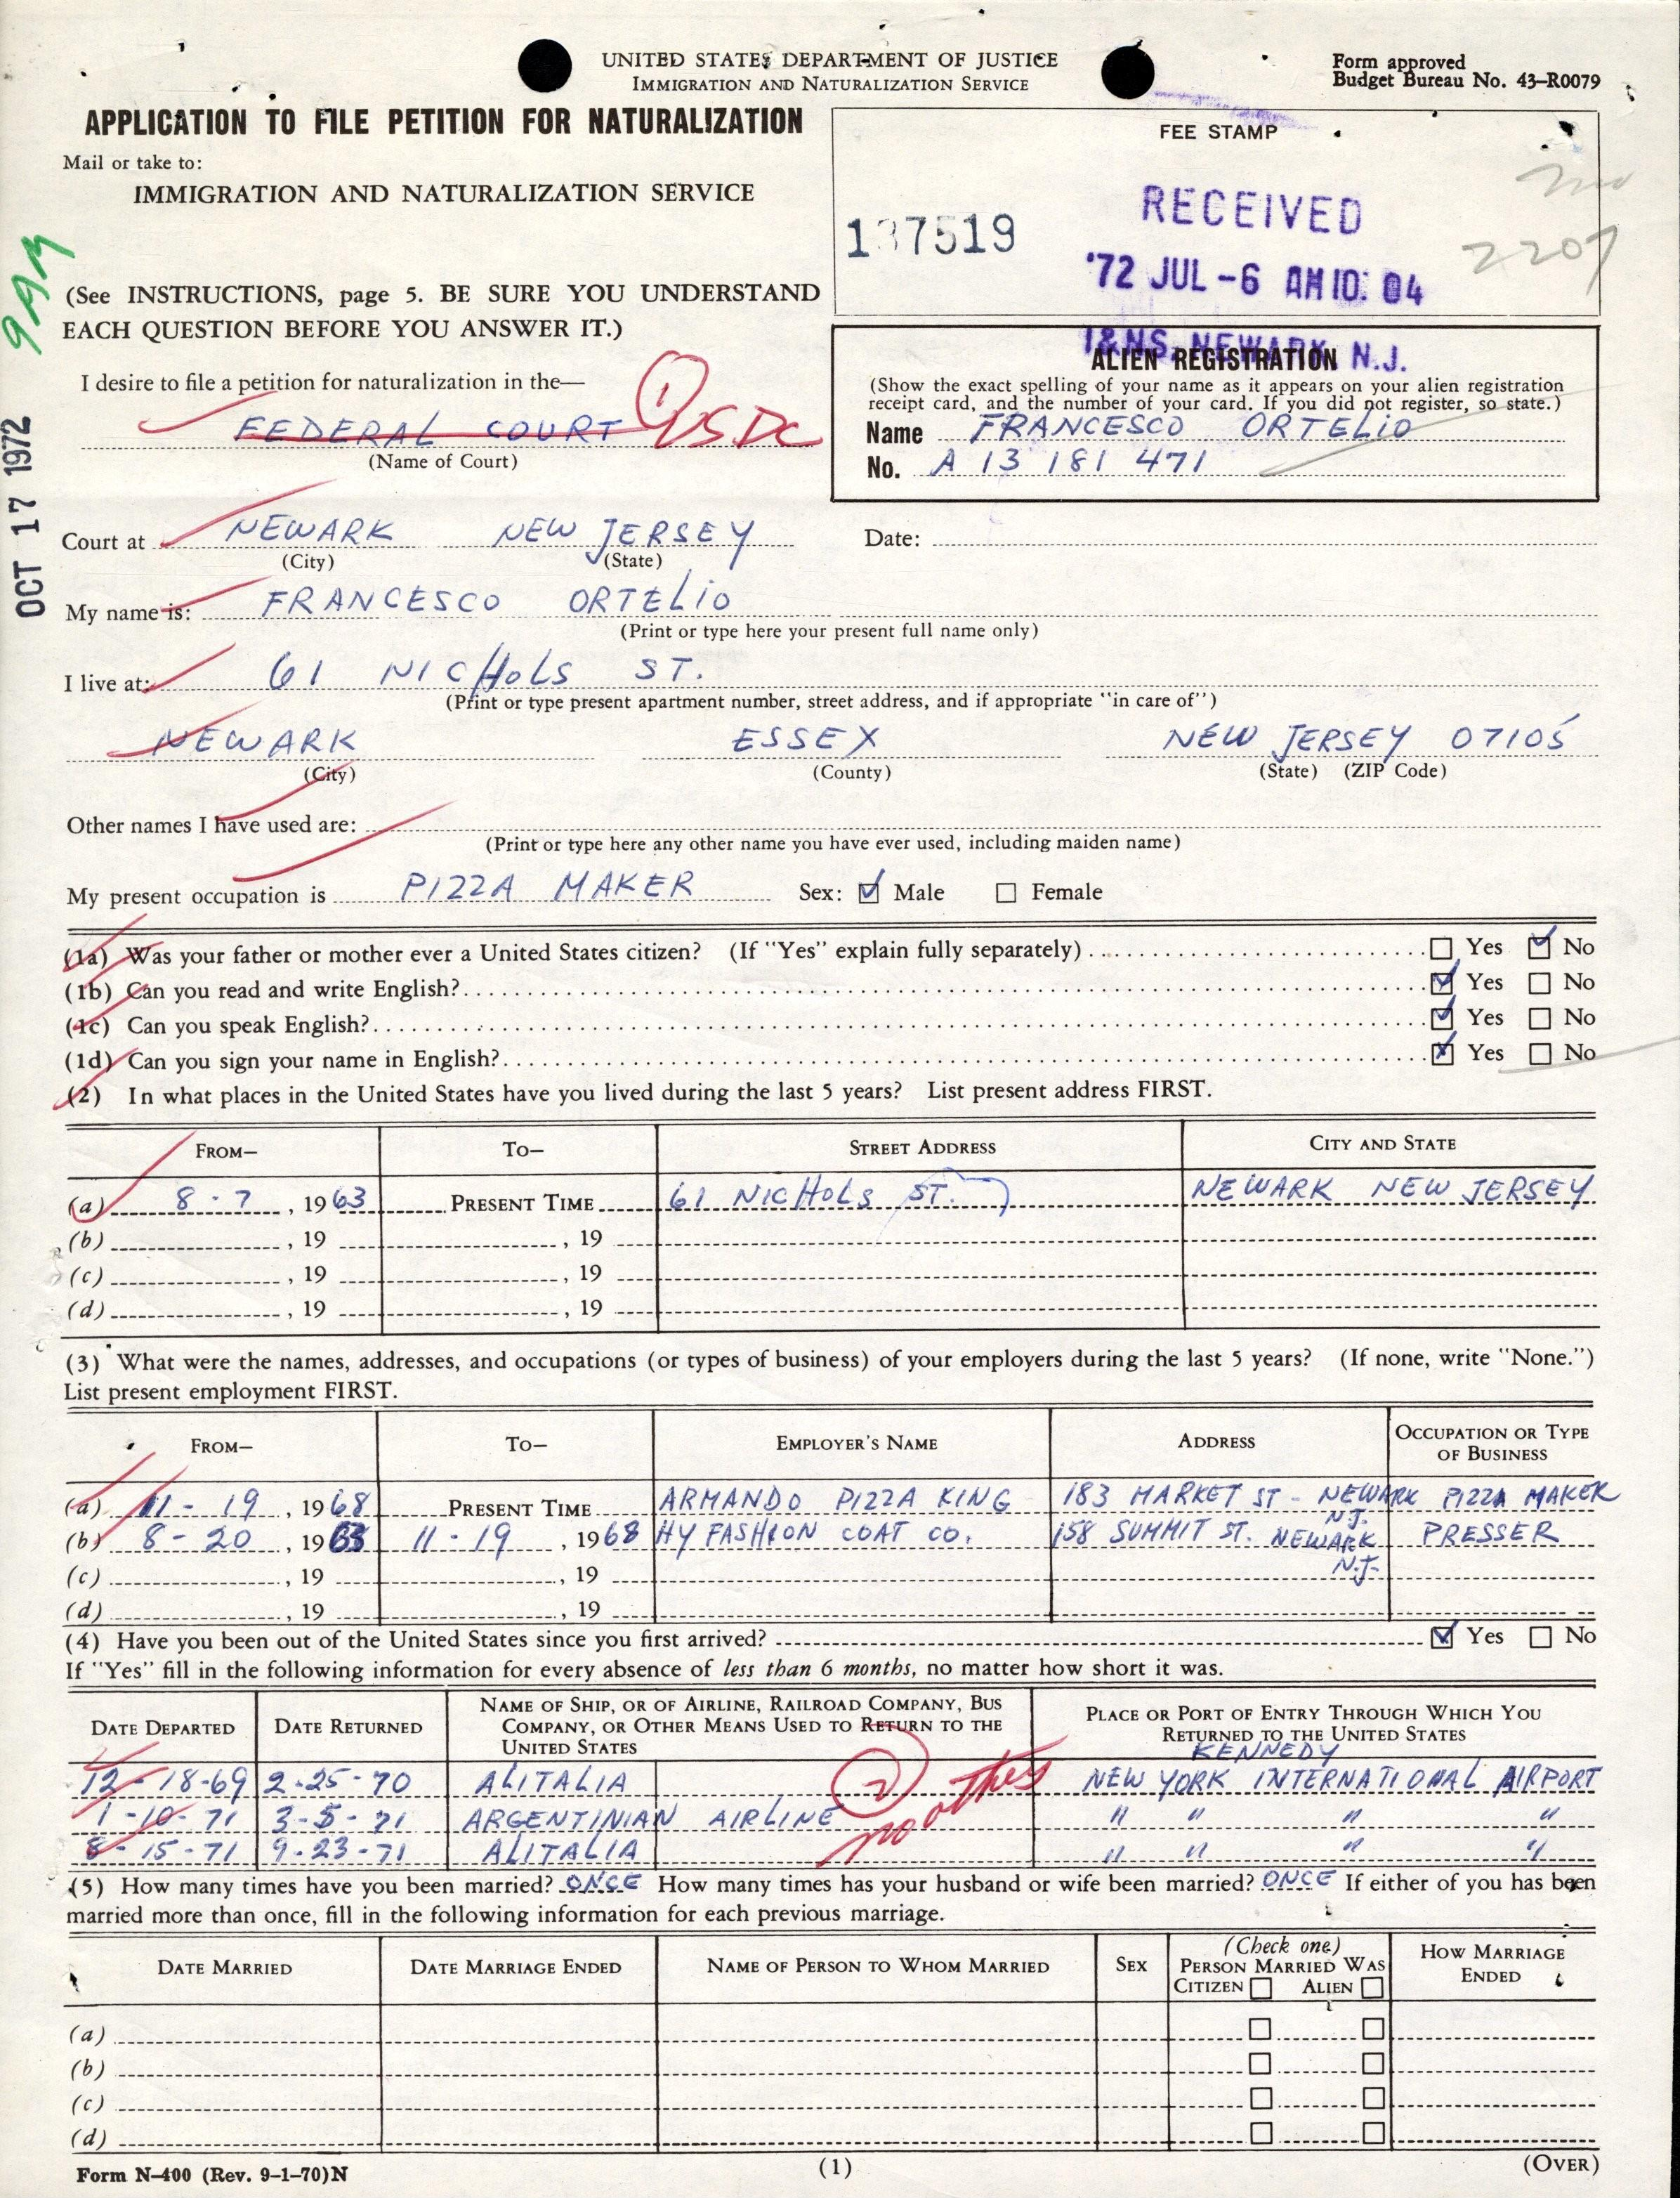 UNITED STATES DEPARTMENT OF JUSTICE
IMMIGRATION AND NATURALIZATION SERVICE
Form approved
Budget Bureau No. 43-R0079
APPLICATION TO FILE PETITION FOR NATURALIZATION
Mail or take to:
IMMIGRATION AND NATURALIZATION SERVICE
FEE STAMP
137519
RECEIVED
'72 JUL-6 AM 10:04
I&NS. NEWARK, N.J.
2207
9AM
OCT 17 1972
(See INSTRUCTIONS, page 5. BE SURE YOU UNDERSTAND
EACH QUESTION BEFORE YOU ANSWER IT.)
ALIEN REGISTRATION
(Show the exact spelling of your name as it appears on your alien registration
receipt card, and the number of your card. If you did not register, so state.)
Name FRANCESCO ORTELIO
No. A 13 181 471
I desire to file a petition for naturalization in the—
FEDERAL COURT (1) USDC
(Name of Court)
Court at NEWARK NEW JERSEY Date:
(City) (State)
My name is: FRANCESCO ORTELIO
(Print or type here your present full name only)
I live at: 61 NICHOLS ST.
(Print or type present apartment number, street address, and if appropriate "in care of")
NEWARK ESSEX NEW JERSEY 07105
(City) (County) (State) (ZIP Code)
Other names I have used are:
(Print or type here any other name you have ever used, including maiden name)
My present occupation is PIZZA MAKER Sex: ☑ Male ☐ Female
(1a) Was your father or mother ever a United States citizen? (If "Yes" explain fully separately) ☐ Yes ☑ No
(1b) Can you read and write English? ☑ Yes ☐ No
(1c) Can you speak English? ☑ Yes ☐ No
(1d) Can you sign your name in English? ☑ Yes ☐ No
(2) In what places in the United States have you lived during the last 5 years? List present address FIRST.
FROM— TO— STREET ADDRESS CITY AND STATE
(a) 8-7, 1963 PRESENT TIME 61 NICHOLS ST. NEWARK NEW JERSEY
(b) , 19 , 19
(c) , 19 , 19
(d) , 19 , 19
(3) What were the names, addresses, and occupations (or types of business) of your employers during the last 5 years? (If none, write "None.")
List present employment FIRST.
FROM— TO— EMPLOYER'S NAME ADDRESS OCCUPATION OR TYPE OF BUSINESS
(a) 11-19, 1968 PRESENT TIME ARMANDO PIZZA KING 183 MARKET ST - NEWARK N.J. PIZZA MAKER
(b) 8-20, 1963 11-19, 1968 HY FASHION COAT CO. 158 SUMMIT ST. NEWARK N.J. PRESSER
(c) , 19 , 19
(d) , 19 , 19
(4) Have you been out of the United States since you first arrived? ☑ Yes ☐ No
If "Yes" fill in the following information for every absence of less than 6 months, no matter how short it was.
DATE DEPARTED DATE RETURNED NAME OF SHIP, OR OF AIRLINE, RAILROAD COMPANY, BUS COMPANY, OR OTHER MEANS USED TO RETURN TO THE UNITED STATES PLACE OR PORT OF ENTRY THROUGH WHICH YOU RETURNED TO THE UNITED STATES
KENNEDY
12-18-69 2-25-70 ALITALIA NEW YORK INTERNATIONAL AIRPORT
1-10-71 3-5-71 ARGENTINIAN AIRLINE " " " "
8-15-71 9-23-71 ALITALIA " " " "
(2) no others
(5) How many times have you been married? ONCE How many times has your husband or wife been married? ONCE If either of you has been
married more than once, fill in the following information for each previous marriage.
DATE MARRIED DATE MARRIAGE ENDED NAME OF PERSON TO WHOM MARRIED SEX (Check one) PERSON MARRIED WAS CITIZEN ☐ ALIEN ☐ HOW MARRIAGE ENDED
(a) ☐ ☐
(b) ☐ ☐
(c) ☐ ☐
(d) ☐ ☐
Form N-400 (Rev. 9-1-70)N (1) (OVER)